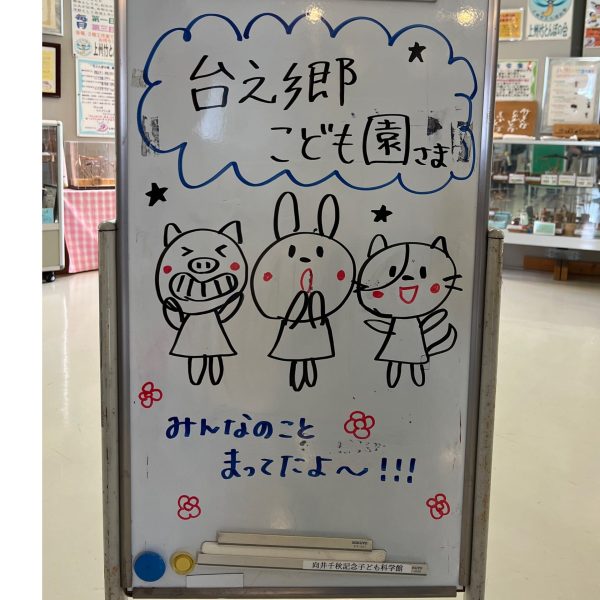 台之郷
こども園さま
みんなのこと
まってたよ〜!!!
向井千秋記念子ども科学館
上州竹とんぼの会